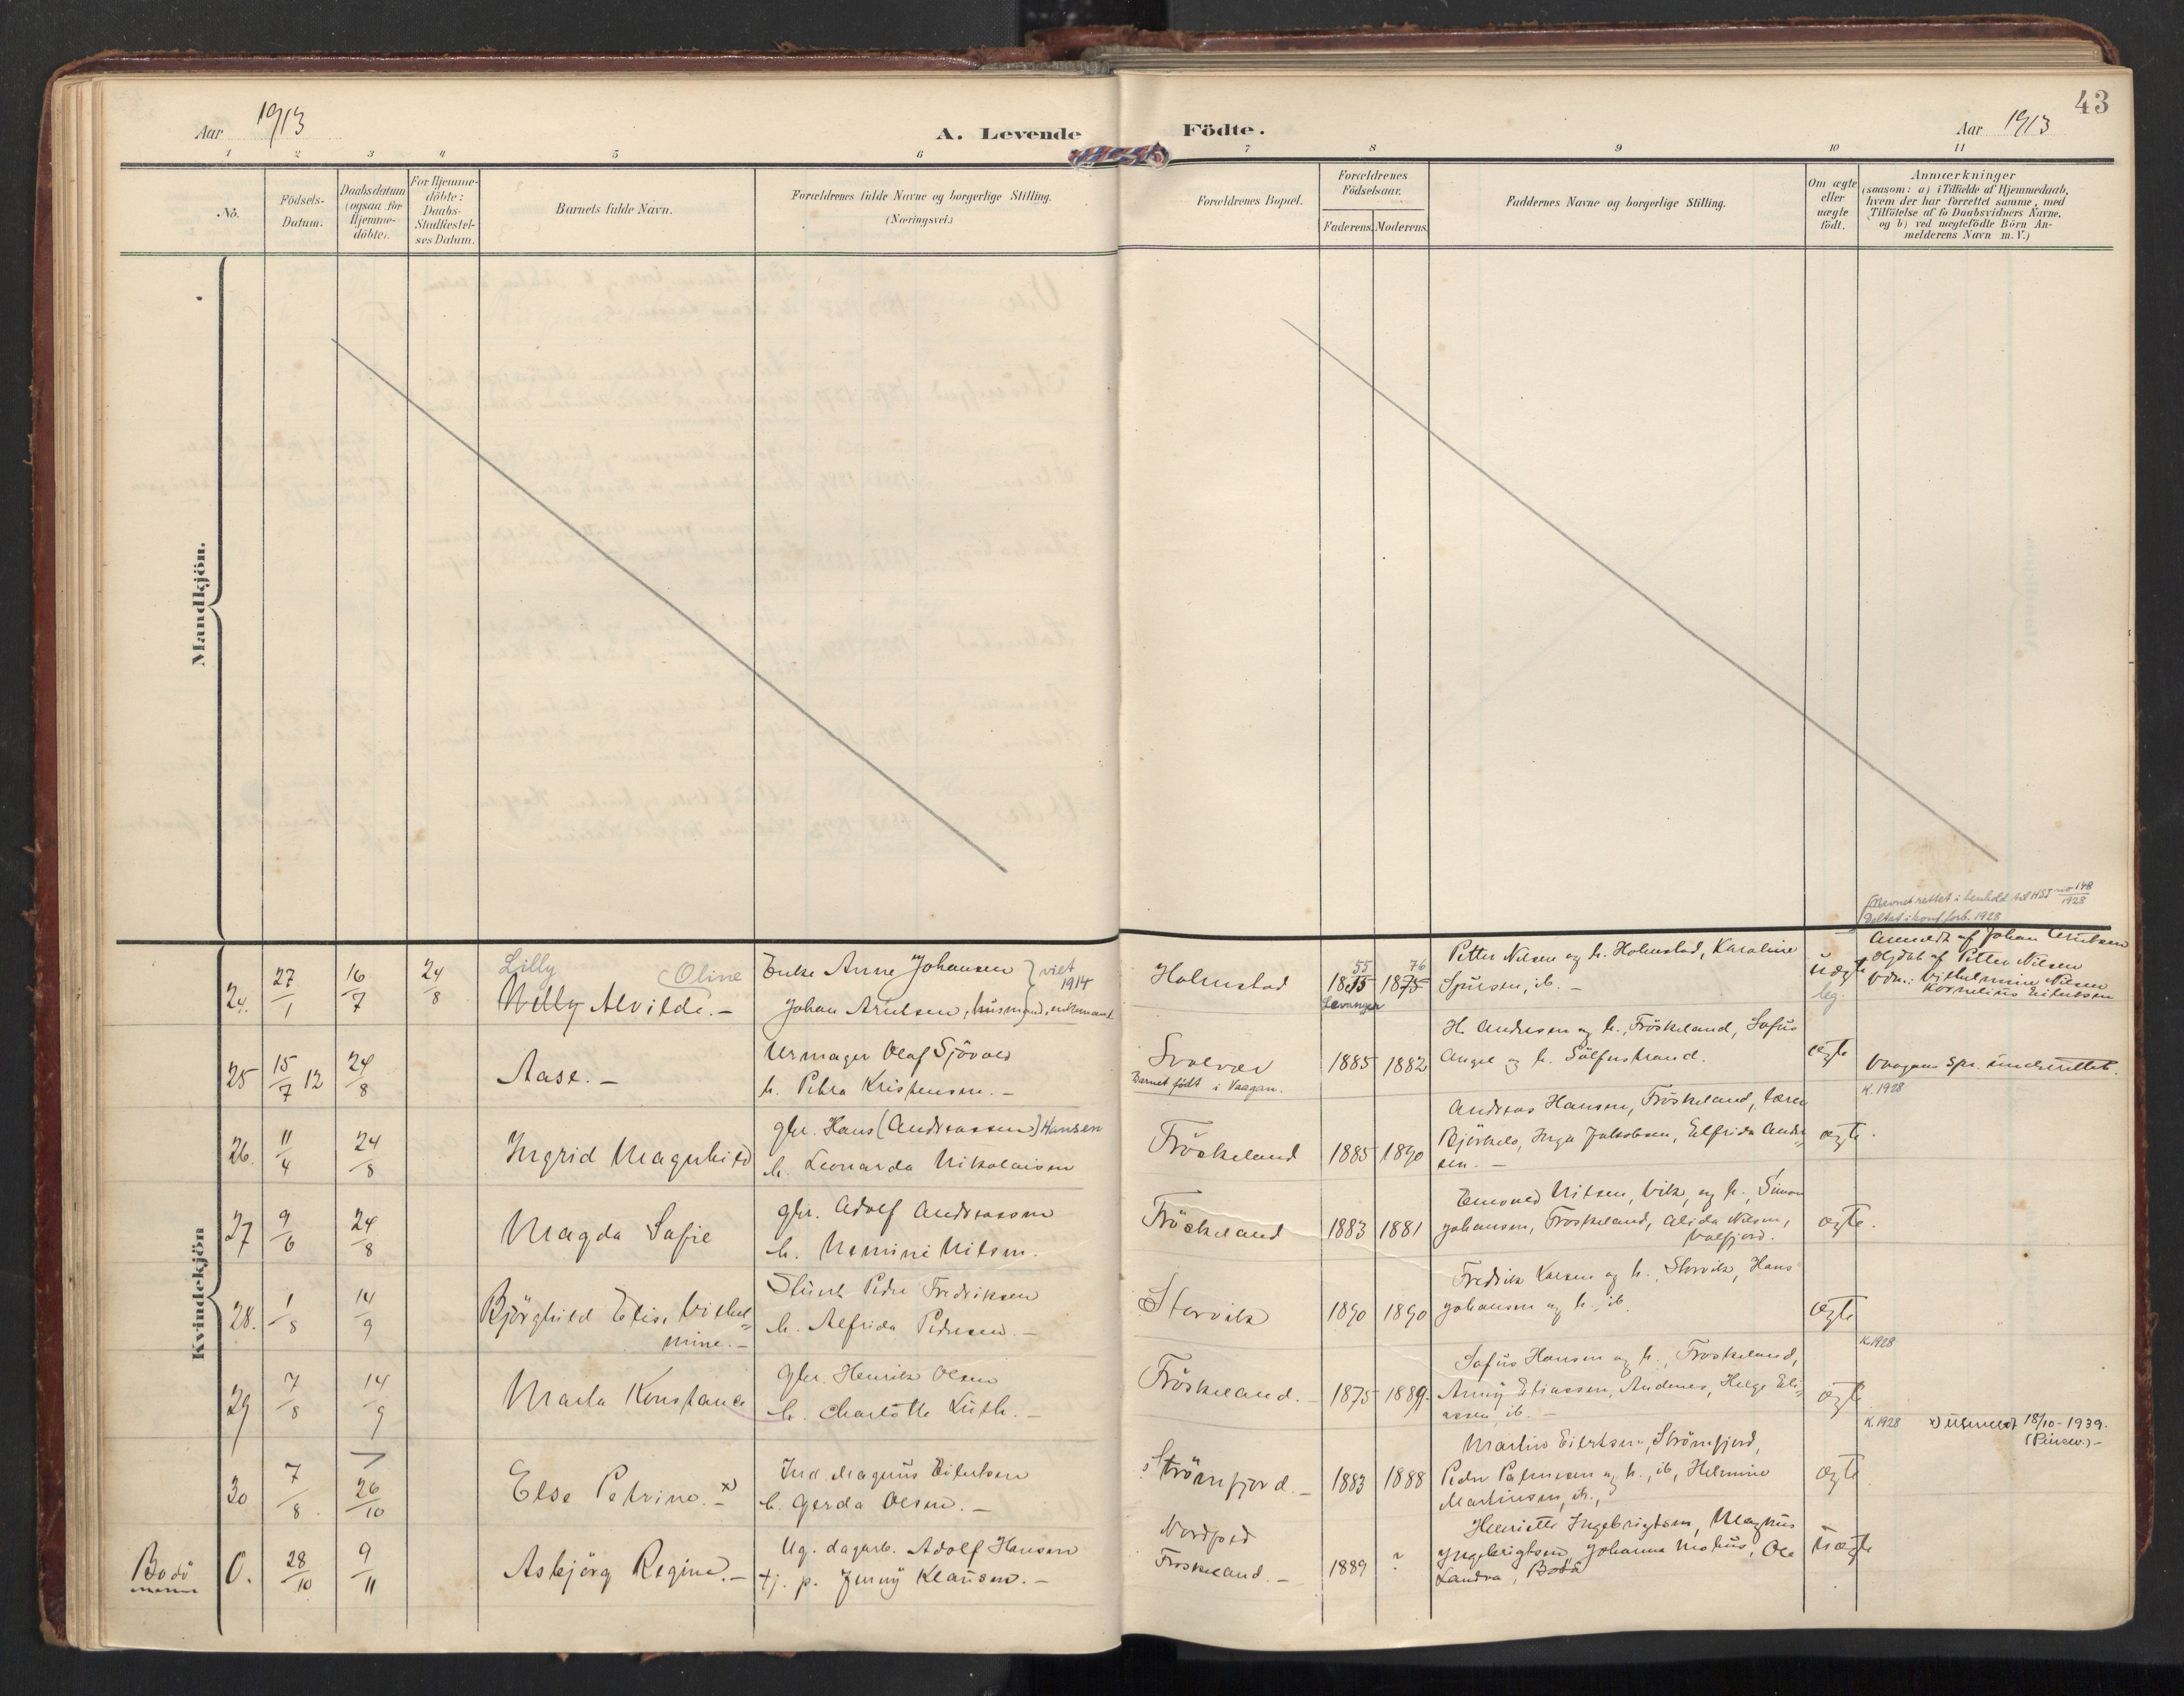 43
Aar 1913
A. Levende Födte.
Aar 1913
1 2 3 4 5 6 7 8 9 10 11
No.
Födsels-
Datum.
Daabsdatum
(ogsaa for
Hjemme-
döbte).
For Hjemme-
döbte:
Daabs-
Stadfæstel-
ses Datum.
Barnets fulde Navn.
Forældrenes fulde Navne og borgerlige Stilling.
(Næringsvei.)
Forældrenes Bopæl.
Forældrenes
Födselsaar.
Faderens. Moderens.
Faddernes Navne og borgerlige Stilling.
Om ægte
eller
uægte
födt.
Anmærkninger
(saasom: a) i Tilfælde af Hjemmedaab,
hvem der har forrettet samme, med
Tilföielse af to Daabsvidners Navne,
og b) ved uægtefödte Börn An-
melderens Navn m. V.)
Mandkjön.
Kvindekjön
rettet i henhold til no 148
1928
konf.forb. 1928
24. 27/1 16/7 24/8
Lilly Oline
Willy Alvilde.-
Enke Anne Johansen
viet 1914
Johan Arntsen, husmand, enkemand
Holmstad
55 76
1855 1875
Levanger
Petter Nilsen og h. Holmstad, Karoline
ib. -
Uægte
leg.
Anmeldt af Johan Arntsen
Hjdbt af Petter Nilsen
Vdn.: Vilhelmine Nilsen
Kornelius Eilertsen
25 15/7 12 24/8
Aase.-
Urmager Olaf Sjövold
h. Petra Kristensen.-
Svolvær
Barnet födt i Vaagan.
1885 1882
H. Andersen og h., Fröskeland, Sofus
Angel og h. Sölfustrand.
ægte
Vaagans Spr. underrettet.
K. 1928
26. 11/4 24/8
Ingrid Magnhild
gbr. Hans (Andreassen) Hansen
h. Leonarda Nikolaisen
Fröskeland
1885 1890
Andreas Hansen, Fröskeland,
Inga Jakobsen, Elfrida Andre-
sen.-
ægte.
27 9/6 24/8
Magda Sofie
gbr. Adolf Andreassen
h. Nilsen.
Fröskeland
1883 1881
Nilsen, Vik, og h., Simon
Johansen, Froskeland, Alida Nilsen,
Valfjord.
ægte.
28. 1/8 14/9
Björghild Elise Vilhel-
mine.-
Peder Fredriksen
h. Alfrida Pedersen.-
Storvik
1890 1890
Fredrik Larsen og h., Storvik, Hans
Johansen og h., ib.
ægte
K. 1928
29 7/8 14/9
Marta Konstance
gbr. Henrik Olsen
h. Charlotte Luth.-
Fröskeland.-
1875 1889.
Sofus Hansen og h., Froskeland,
Anny Eliassen, Andenes, Helge Eli-
assen, ib.-
ægte
K. 1928
x) Udmeldt 18/10-1939.
(Pinsev.)-
30 7/8 26/10
Else Petrine.- x)
Ind. Magnus Eilertsen
h. Gerda Olsen.-
Strömfjord.-
1883 1888
Martin Eilertsen, Strömfjord,
Peder og h., ib, Helmine
Martinsen, ib.,
ægte
Bodö
0. 28/10 9/11
Asbjörg Regine.-
Ug. dagarb. Adolf Hansen
tj. p. Jenny Klausen.-
Nordfjord
Froskeland.-
1889 ?
Henriette Ingebrigtsen, Magnus
Ingebrigtsen, Johanna Ole
Bodö
Uægte